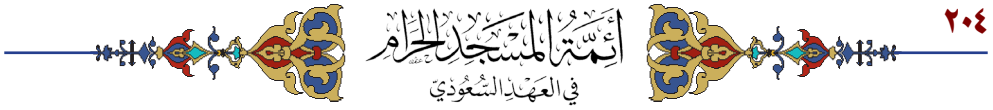 ٢٠٤
أَئِمَّةُ المَسْجِدِ الحَرَامِ
فِي العَهْدِ السُّعُودِيّ